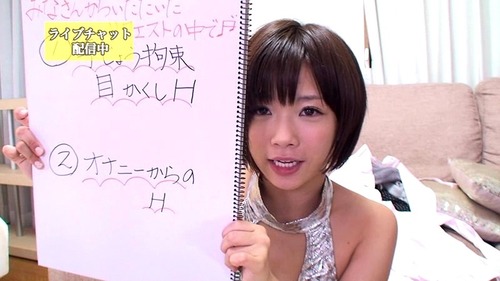 おなさんからいただいた
エストの中で♪
ライブチャット
配信中
拘束
目かくしH
② オナニーからの
H